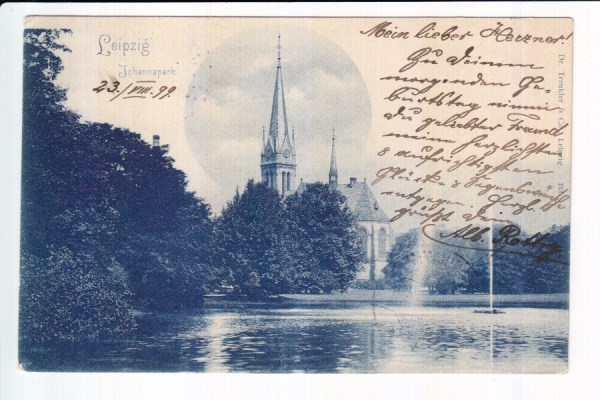 Leipzig
Johannapark
23./VIII.99
Mein lieber Herzner!
Zu Deinem
morgenden Ge-
burtstag nimm
Du geliebter Freund
meine herzlichsten
& aufrichtigsten
Glück- & Segenswünsche
entgegen.
grüßt Dein
Alb.
Dr. Trenkler & Co., Leipzig